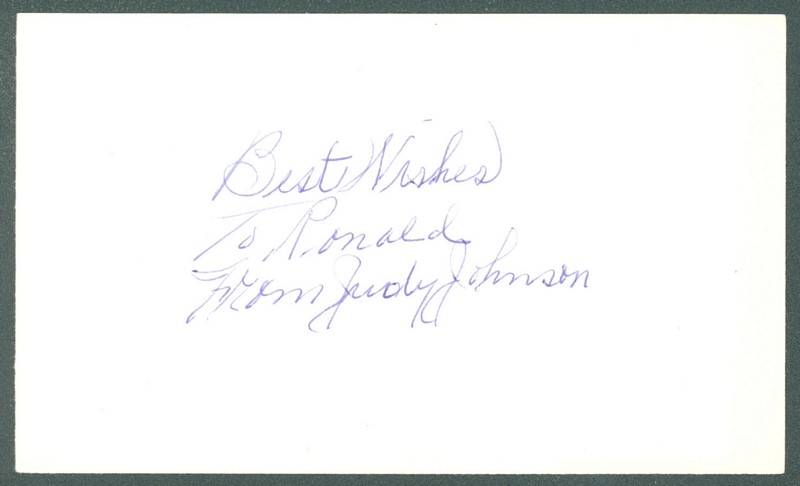 Best Wishes
To Ronald
From Judy Johnson